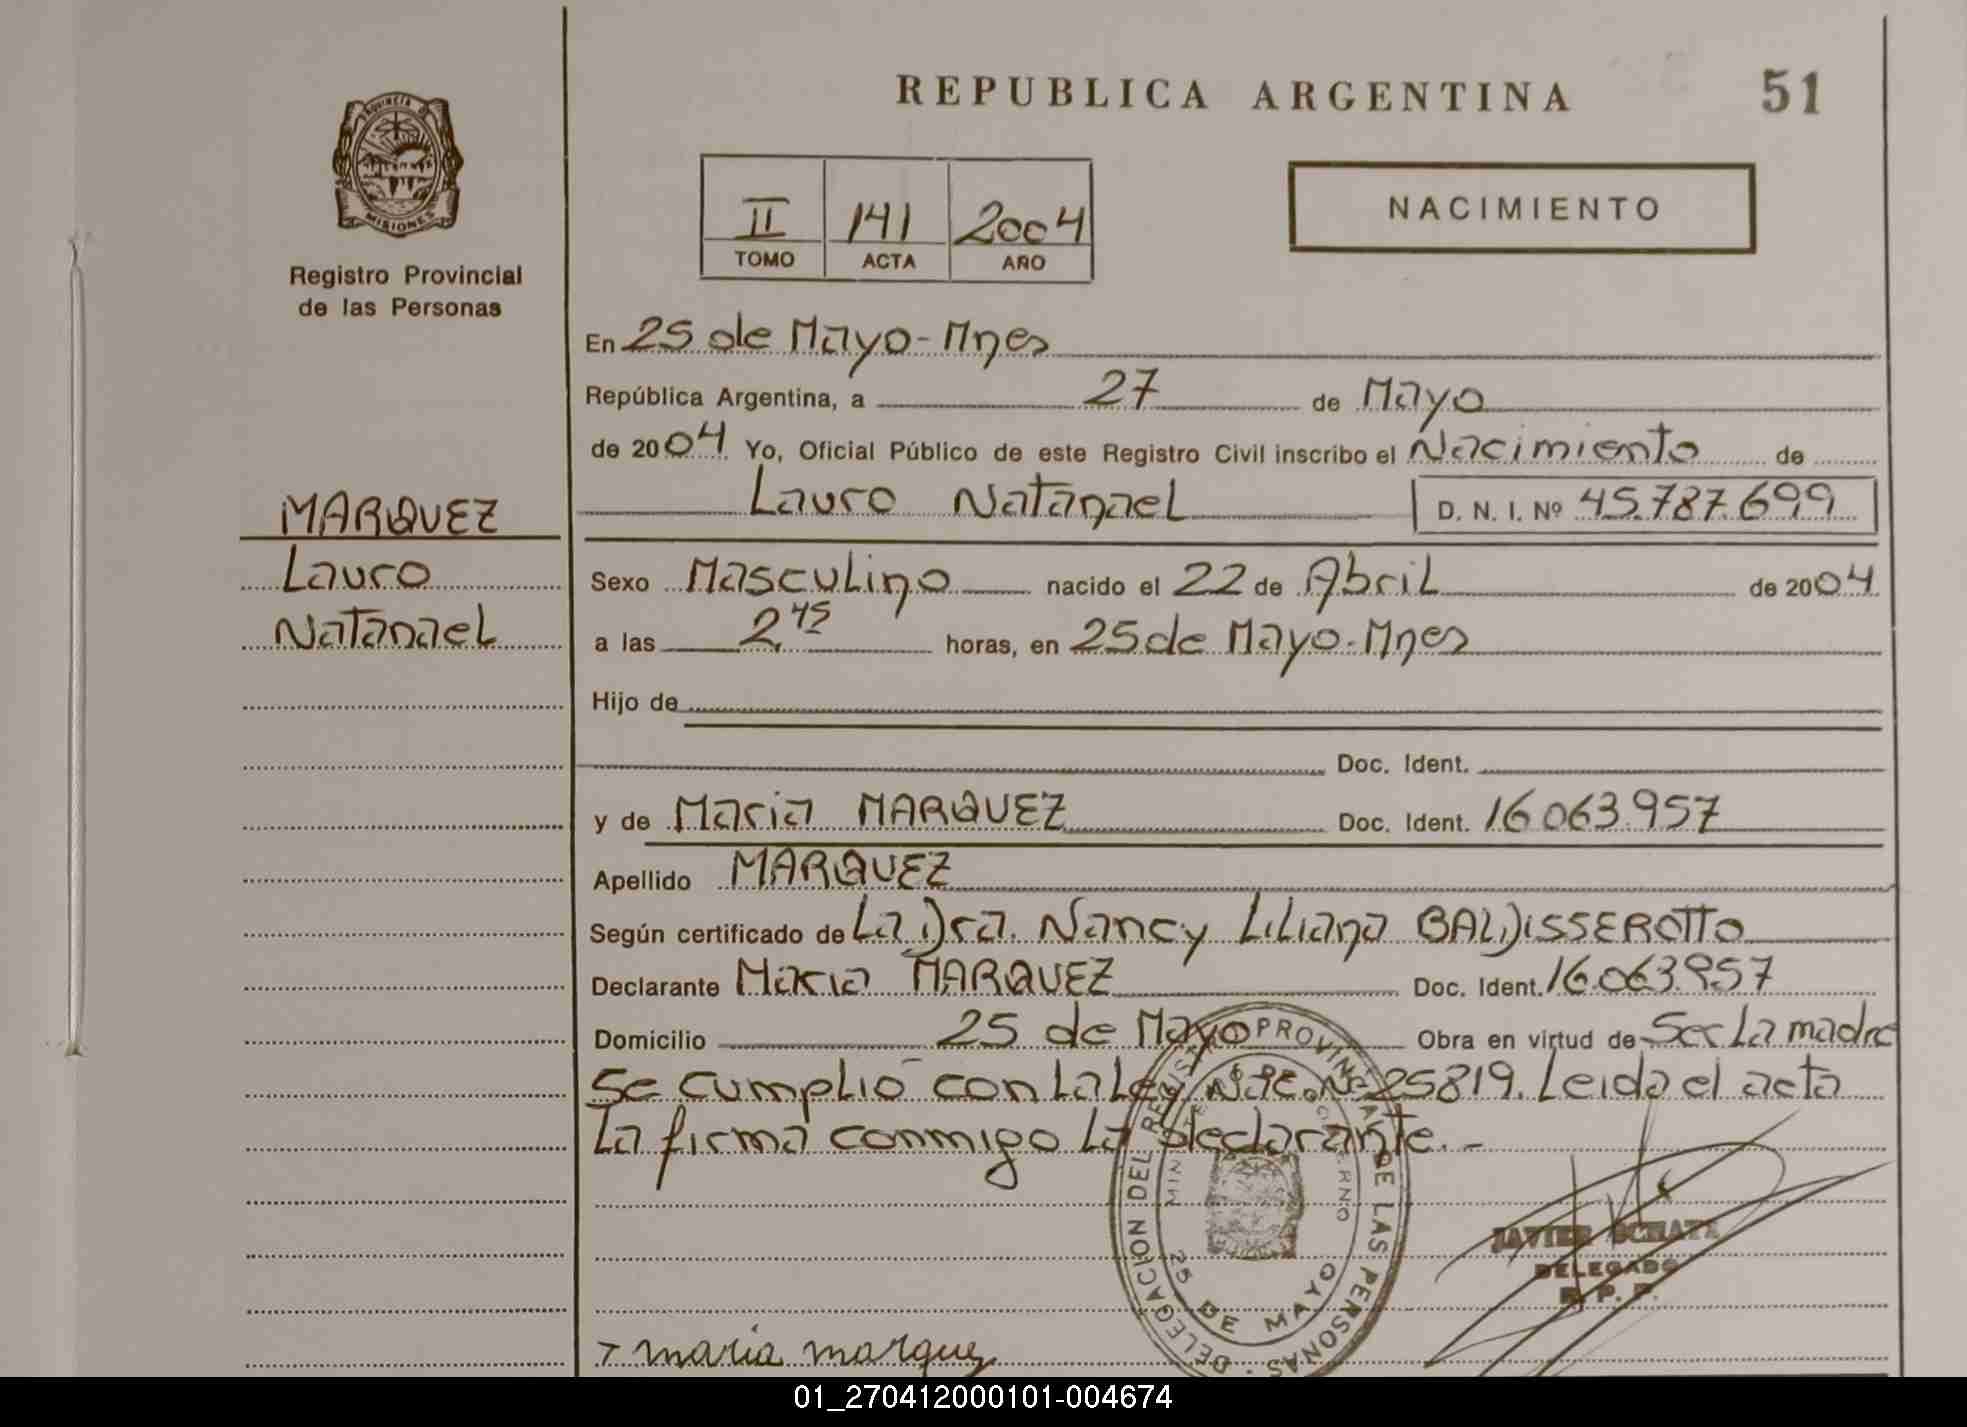 REPUBLICA ARGENTINA
51
PROVINCIA DE MISIONES
Registro Provincial
de las Personas
II 141 2004
TOMO ACTA AÑO
NACIMIENTO
En 25 de Mayo - Mnes
República Argentina, a 27 de Mayo
de 2004 Yo, Oficial Público de este Registro Civil inscribo el Nacimiento de
Lauro Natanael D. N. I. Nº 45.787.699
MARQUEZ
Lauro
Natanael
Sexo Masculino nacido el 22 de Abril de 2004
a las 2 45 horas, en 25 de Mayo - Mnes
Hijo de
Doc. Ident.
y de Maria MARQUEZ Doc. Ident. 16.063.957
Apellido MARQUEZ
Según certificado de La Dra. Nancy Liliana BALDISSEROTTO
Declarante Maria MARQUEZ Doc. Ident. 16.063.957
Domicilio 25 de Mayo Obra en virtud de Ser La madre
Se cumplió con la Ley Nac. Nº 25819. Leida el acta
La firma conmigo La declarante.-
DELEGACION DEL REGISTRO PROVINCIAL DE LAS PERSONAS
MINISTERIO DE GOBIERNO
25 DE MAYO
JAVIER
DELEGADO
R. P. P.
maria marquez
01_270412000101-004674